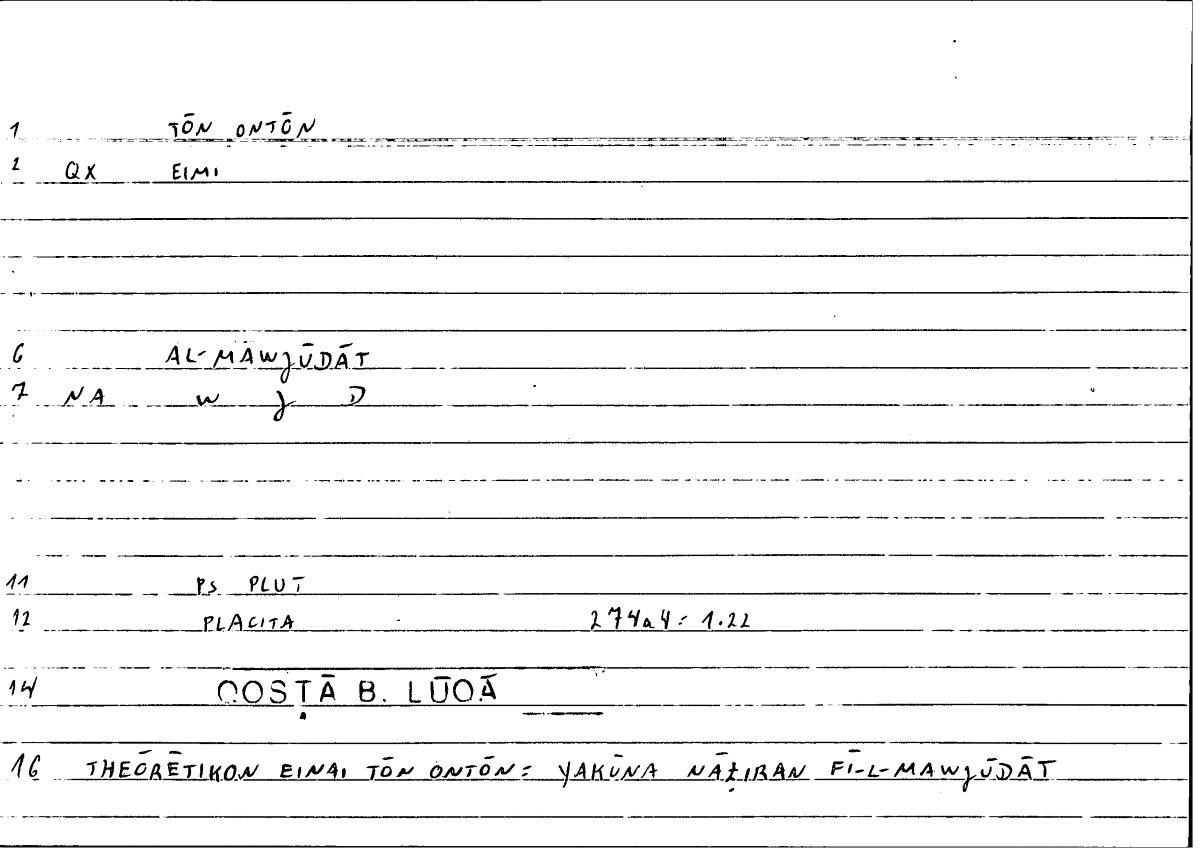 1 TŌN ONTŌN
2 QX EIMI
6 AL-MAWJŪDĀT
7 NA W J D
11 PS PLUT
12 PLACITA 274a4 = 1.22
14 QOSṬĀ B. LŪQĀ
16 THEŌRĒTIKON EINAI TŌN ONTŌN = YAKŪNA NĀẒIRAN FĪ-L-MAWJŪDĀT